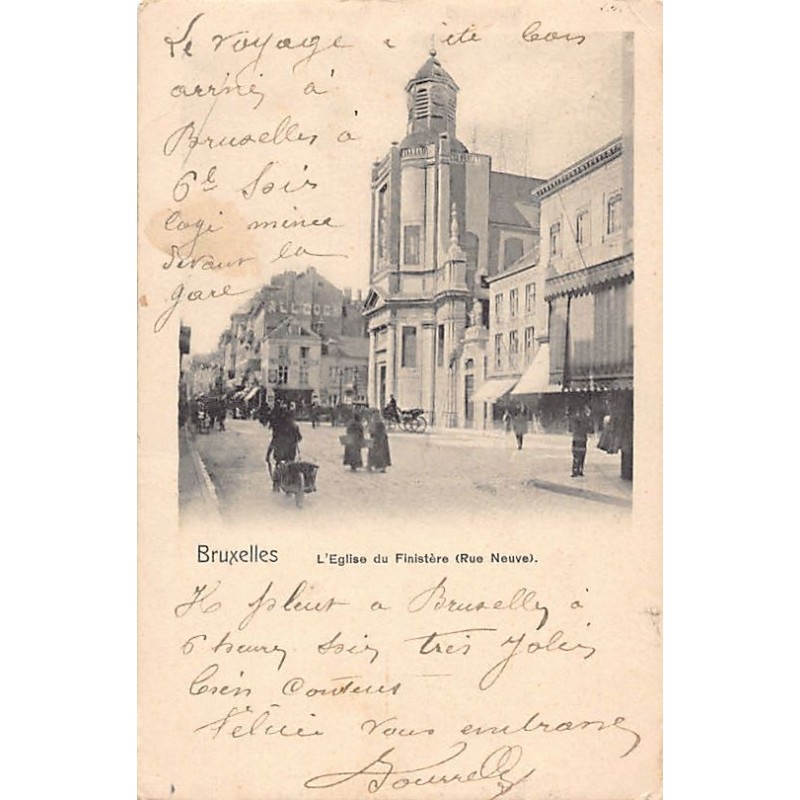 Le voyage a été bon
arrivé à
Bruxelles à
6h Soir
logé
devant la
gare
Bruxelles L'Eglise du Finistère (Rue Neuve).
Il pleut a Bruxelles à
6 heures Soir très Jolie
bien Content
Félicie vous embrasse